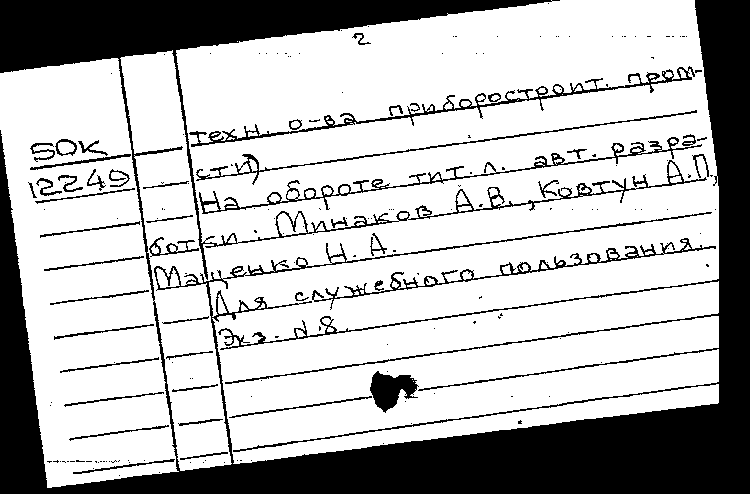 2
техн. о-ва приборостроит. пром-
сти).
SOK
12249
На обороте тит. л. авт. разра-
ботки: Минаков А.В., Ковтун А.П.,
Мащенко Н.А.
Для служебного пользования.
Экз. N.8.